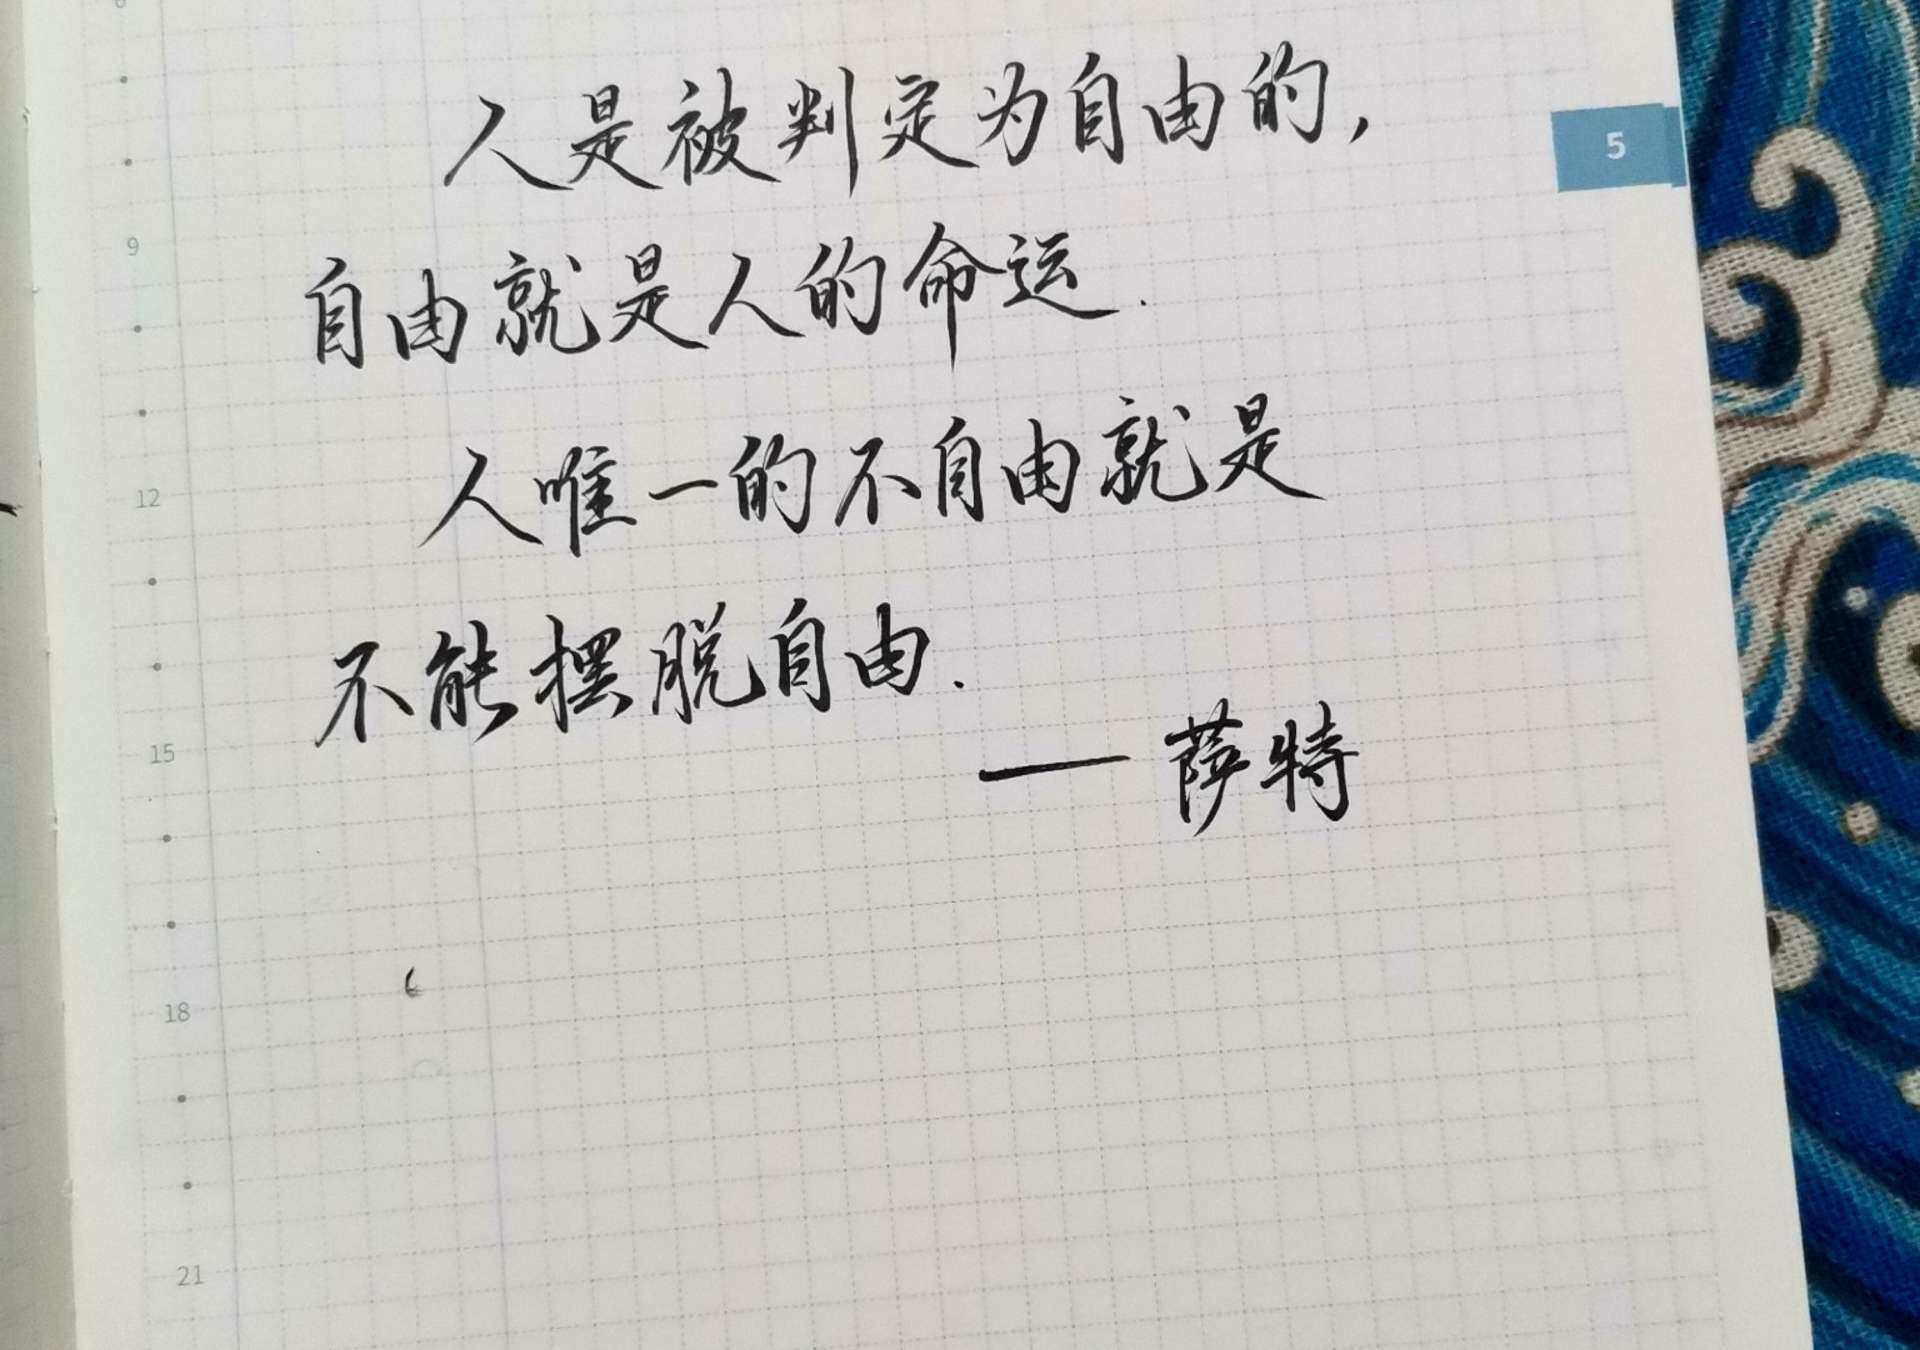 人是被判定为自由的，
5
自由就是人的命运.
9
人唯一的不自由就是
12
不能摆脱自由.
15
—萨特
18
21